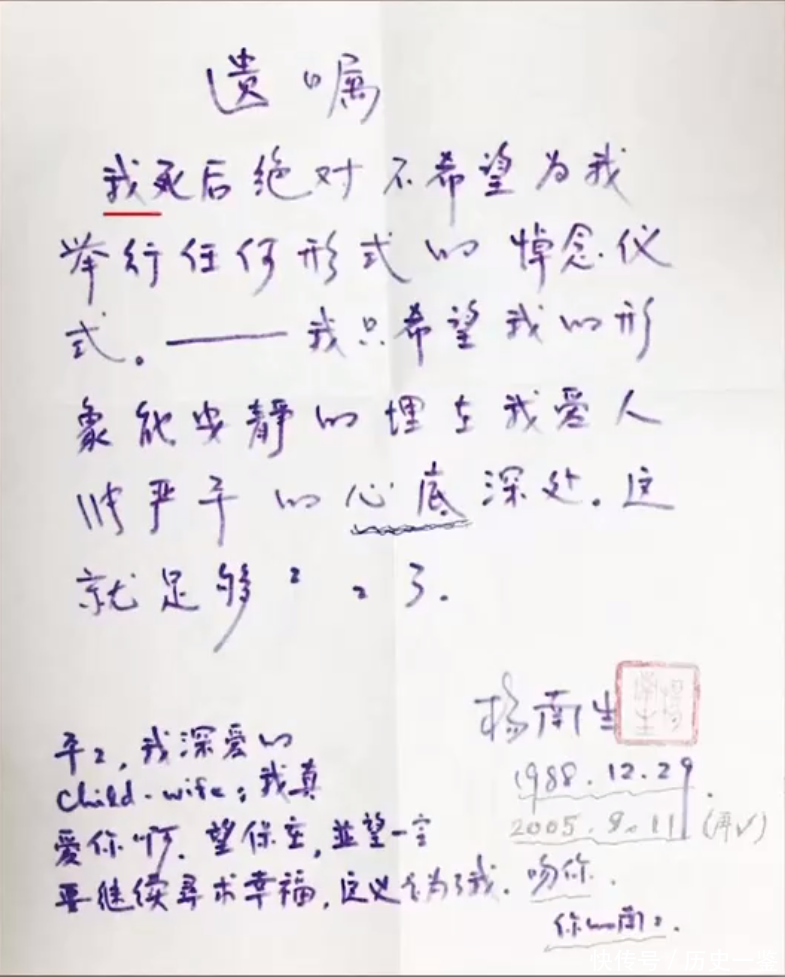 遗嘱
我死后绝对不希望为我
举行任何形式的悼念仪
式。——我只希望我的形
象能安静的埋在我爱人
张严平的心底深处。这
就足够〻〻了.
杨南生
1988.12.29.
2005.9.11 (再√)
平〻,我深爱的
child-wife;我真
爱你啊.望保重,並望一定
要继续寻求幸福,这也是为了我.吻你.
你的南〻.
快传号/历史一鉴